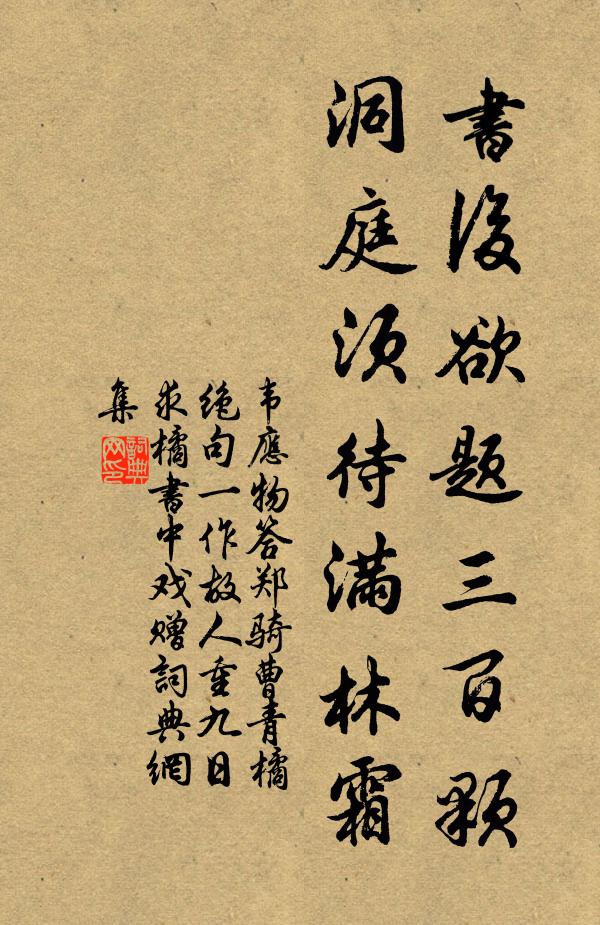 書後欲题三百顆
洞庭须待满林霜
韦應物答郑骑曹青橘
绝句一作故人重九日
求橘書中戏赠詞典網
集
詞典网印